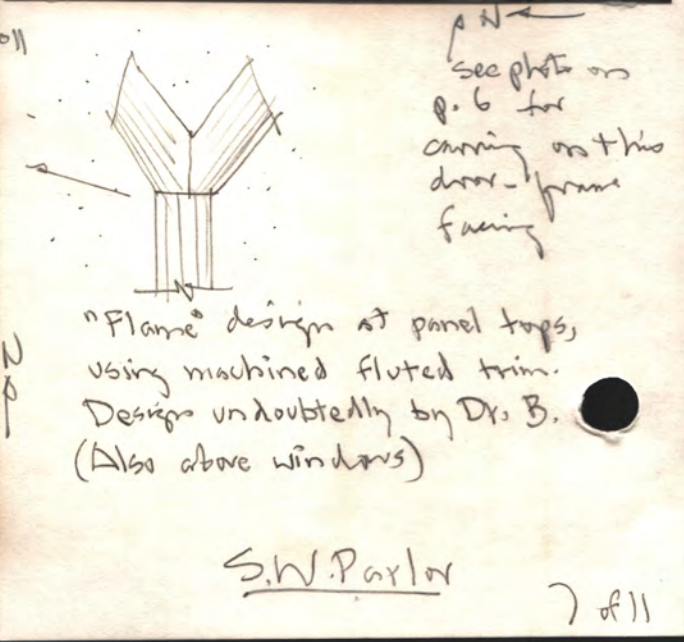 see photo on
p. 6 for
carving on this
door-frame
facing
"Flame" design at panel tops,
using machined fluted trim.
Design undoubtedly by Dr. B.
(Also above windows)
S.W. Parlor
7 of 11